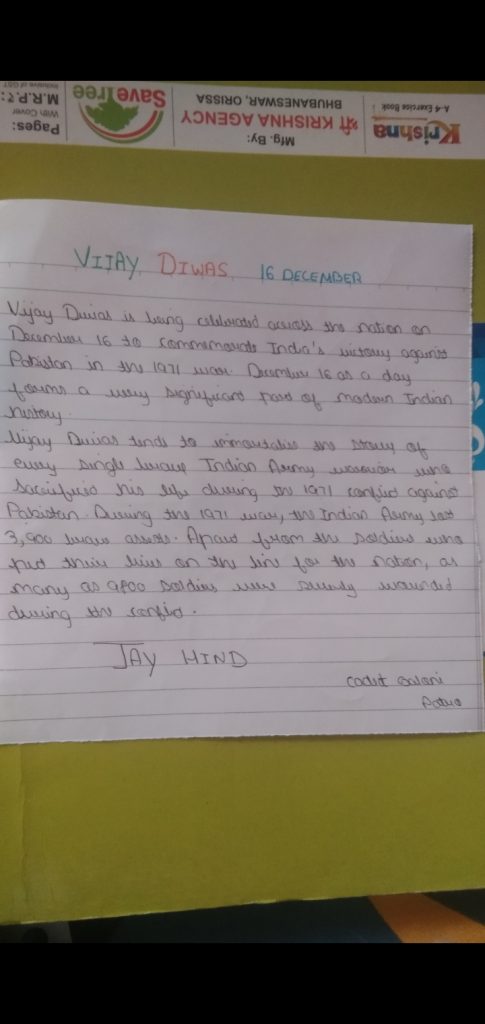 Krishna
A-4 Exercise Book
Mfg. By:
श्री KRISHNA AGENCY
BHUBANESWAR, ORISSA
Save Tree
Pages:
With Cover
M.R.P.₹:
Inclusive of GST
VIJAY DIWAS 16 DECEMBER
Vijay Diwas is being celebrated across the nation on
December 16 to commemorate India's victory against
Pakistan in the 1971 war. December 16 as a day
forms a very significant part of modern Indian
history.
Vijay Diwas tends to immortalise the story of
every single brave Indian Army warrior who
sacrificed his life during the 1971 conflict against
Pakistan. During the 1971 war, the Indian Army lost
3,900 brave. Apart from the soldiers who
put their lives on the line for the nation, as
many as 9800 soldiers were wounded
during the conflict.
JAY HIND
cadet